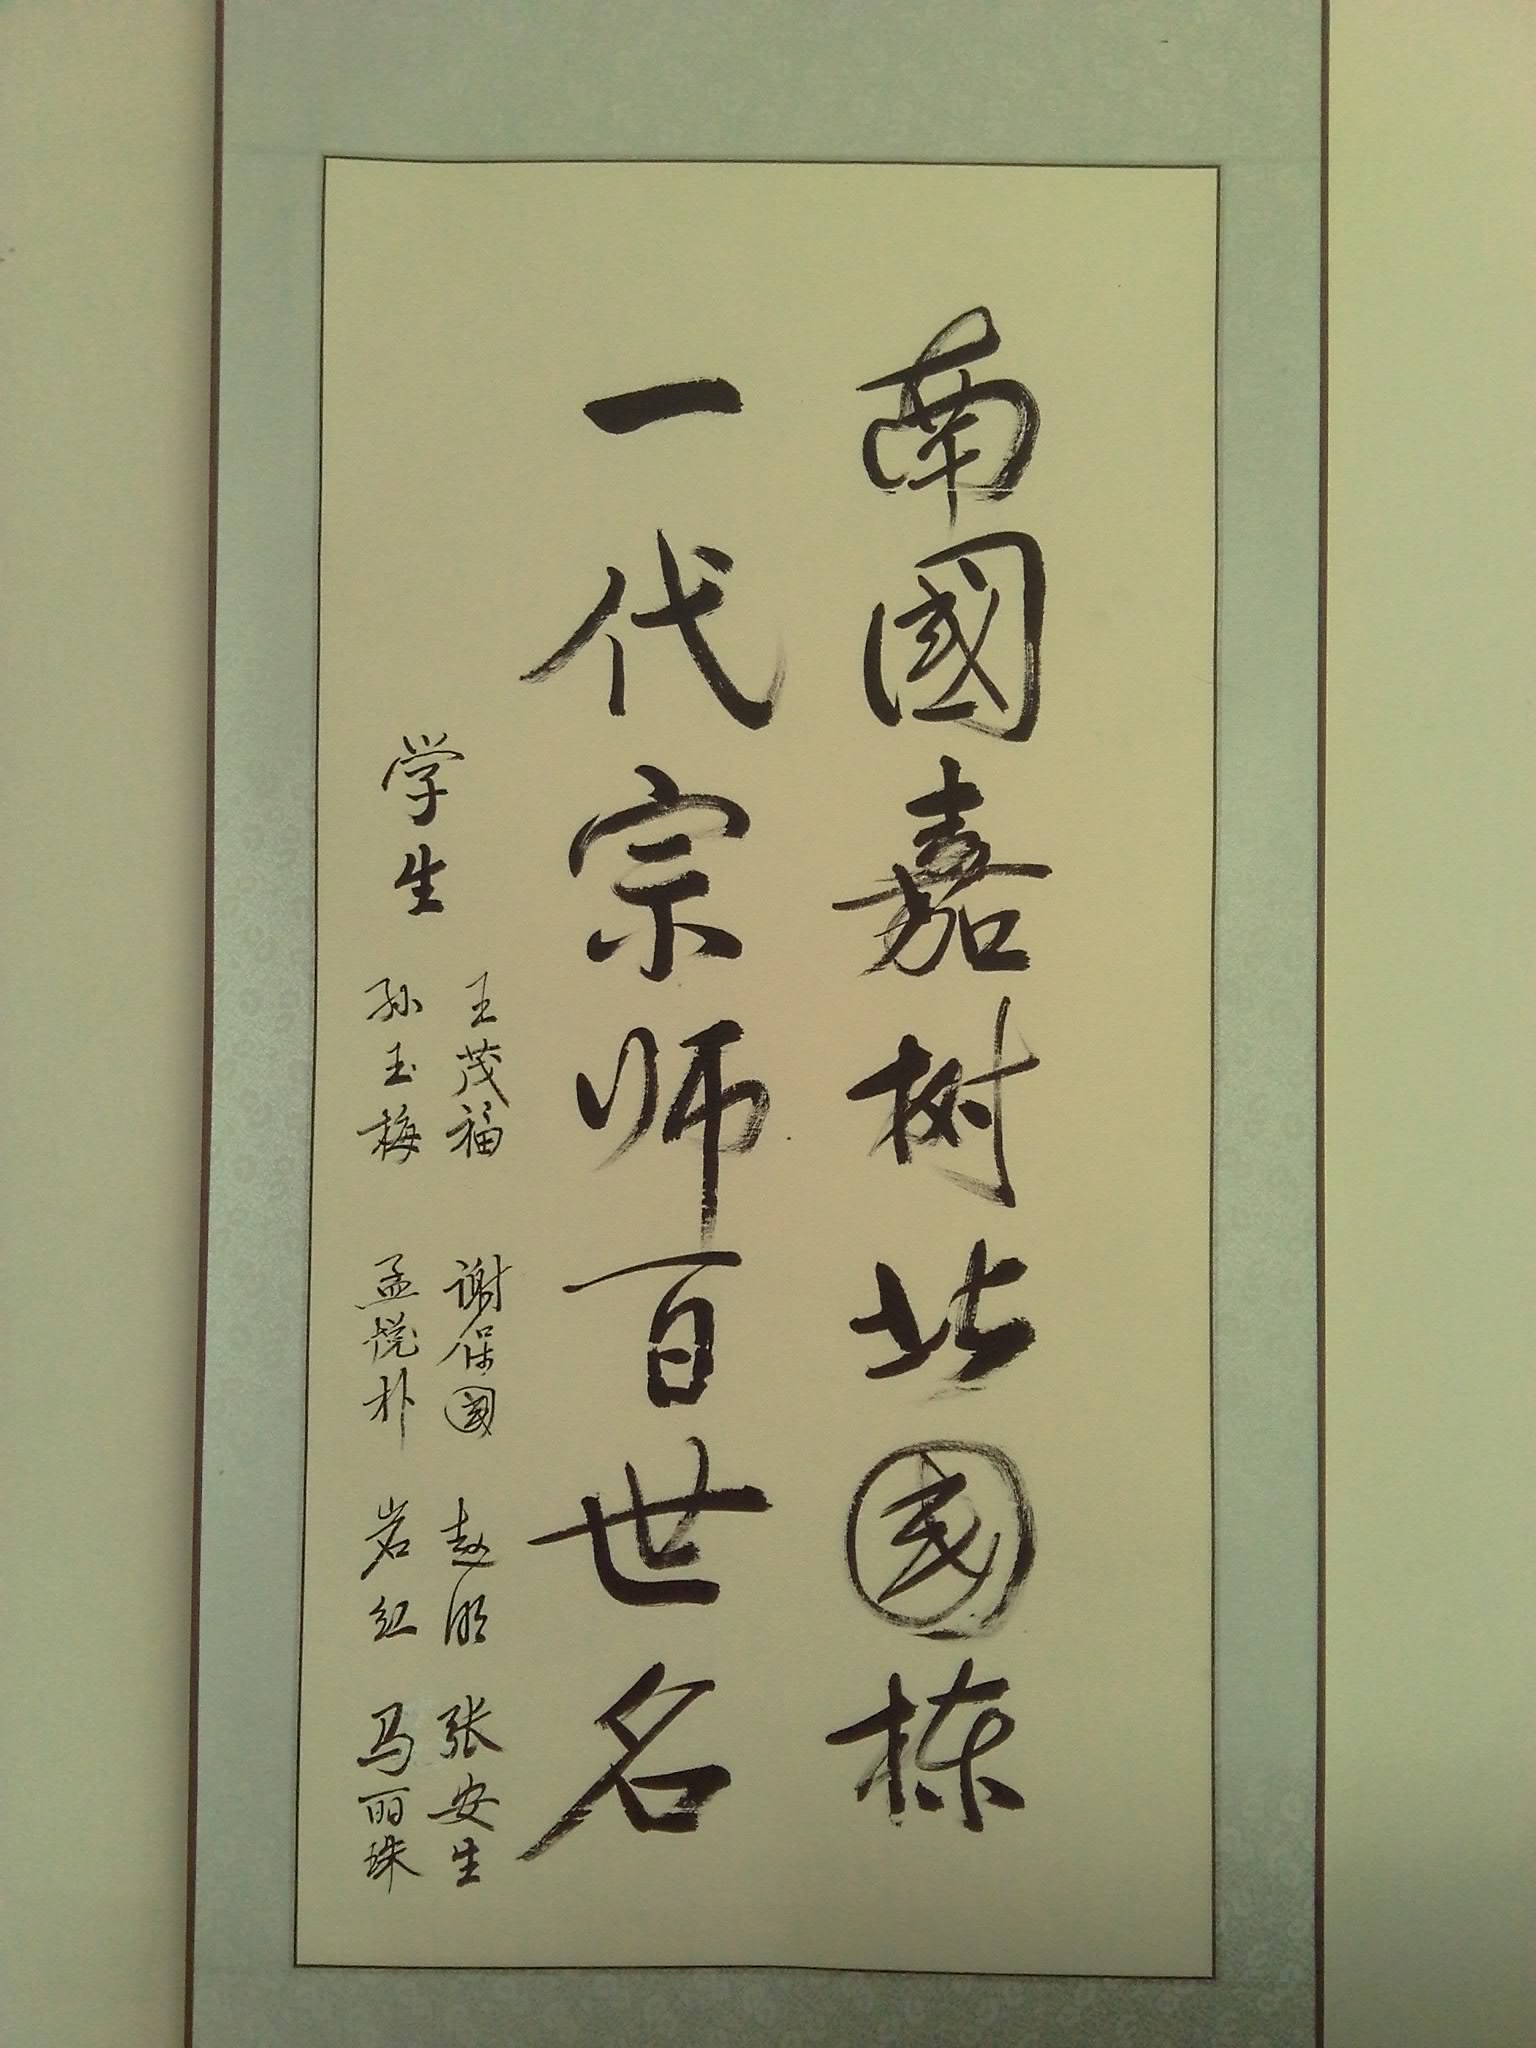 南國嘉树北國栋
一代宗师百世名
学生
王茂福 谢保國 赵明 张安生
孙玉梅 孟悦朴 岩红 马丽珠